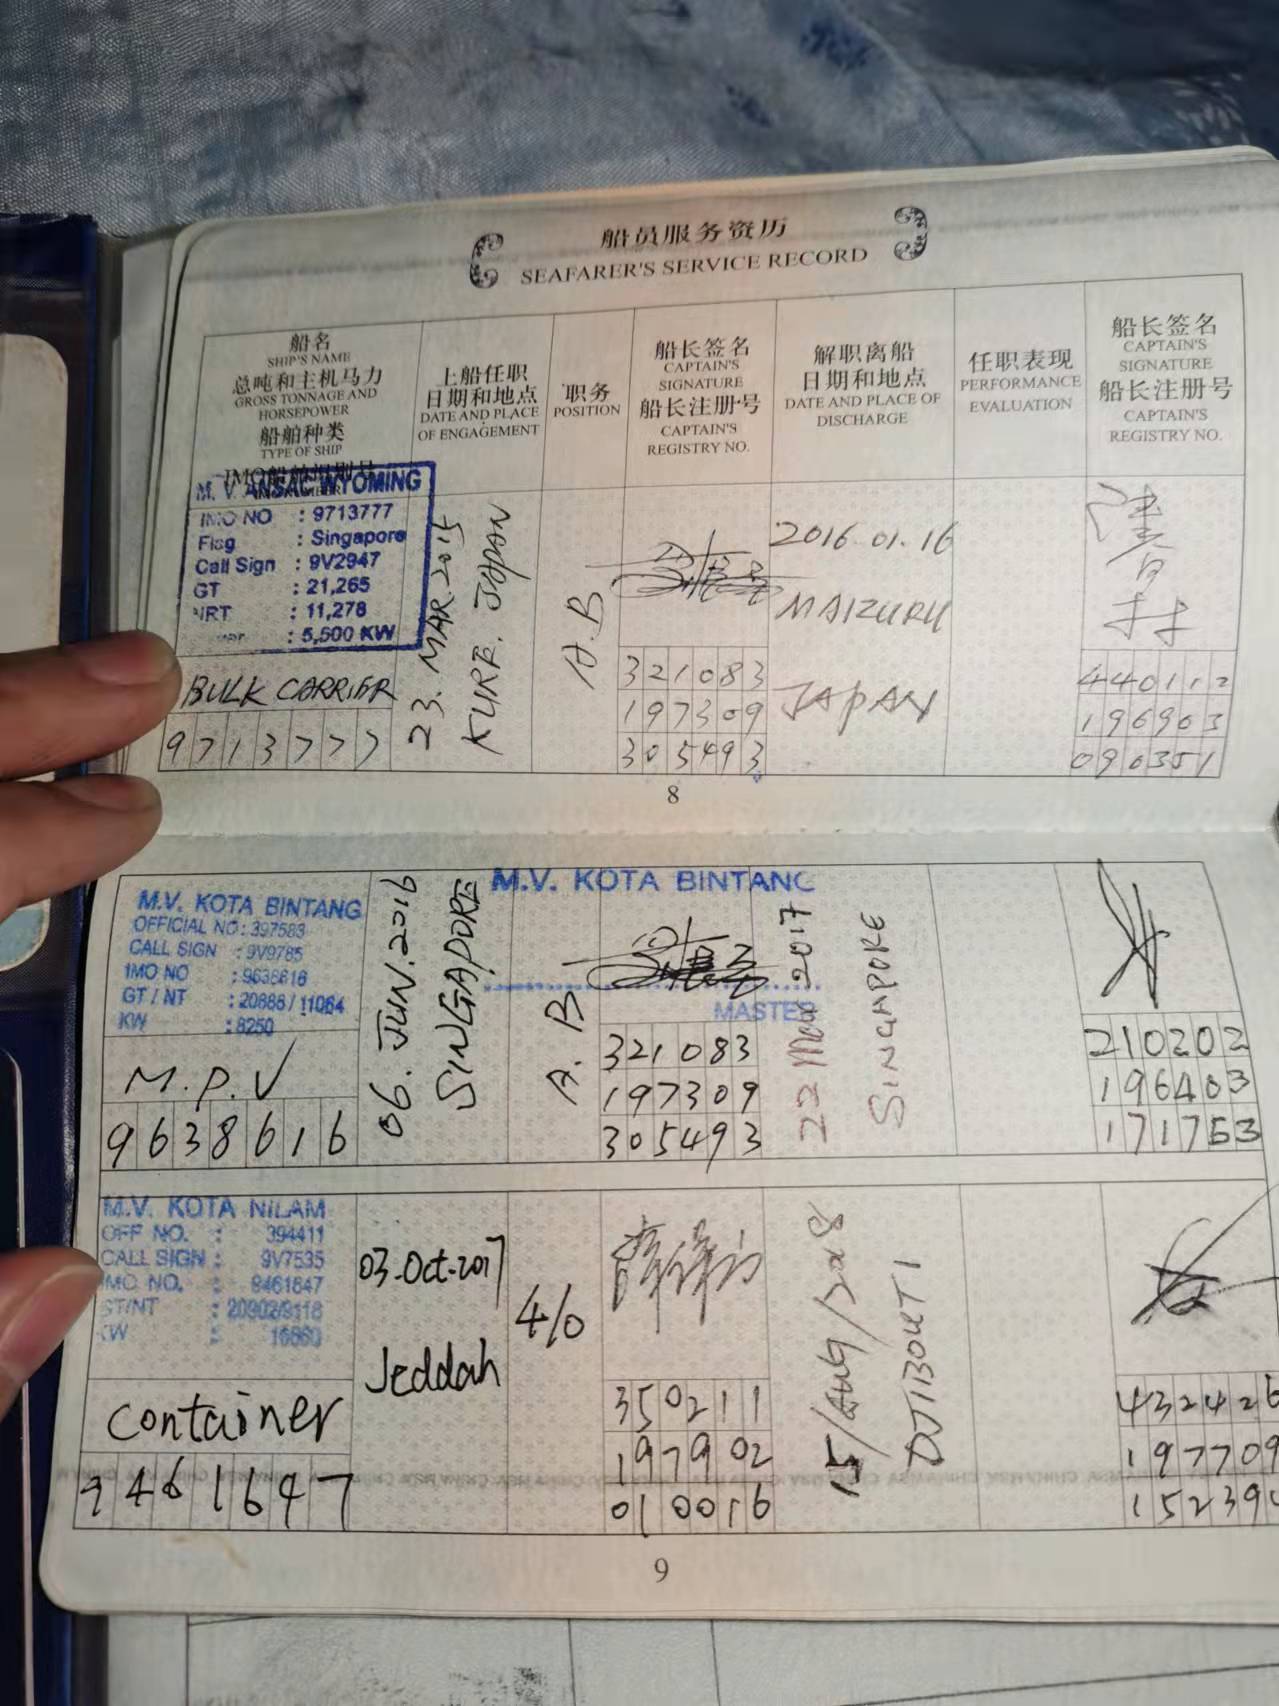 船员服务资历
SEAFARER'S SERVICE RECORD
船名
SHIP'S NAME
总吨和主机马力
GROSS TONNAGE AND
HORSEPOWER
船舶种类
TYPE OF SHIP
上船任职
日期和地点
DATE AND PLACE
OF ENGAGEMENT
职务
POSITION
船长签名
CAPTAIN'S
SIGNATURE
船长注册号
CAPTAIN'S
REGISTRY NO.
解职离船
日期和地点
DATE AND PLACE OF
DISCHARGE
任职表现
PERFORMANCE
EVALUATION
船长签名
CAPTAIN'S
SIGNATURE
船长注册号
CAPTAIN'S
REGISTRY NO.
M. V. ANSAC WYOMING
IMO NO : 9713777
Flag : Singapore
Call Sign : 9V2947
GT : 21,265
NRT : 11,278
: 5,500 KW
BULK CARRIER
9713777
23. MAR 2015
KURE. JAPAN
A.B
321083
197309
305493
2016.01.16
MAIZURU
JAPAN
440112
196903
090351
8
M.V. KOTA BINTANG
OFFICIAL NO: 397583
CALL SIGN : 9V9785
IMO NO : 9638616
GT / NT : 20886 / 11064
KW : 8250
M.P.V
9638616
06. JUN. 2016
SINGAPORE
A. B
M.V. KOTA BINTANG
MASTER
321083
197309
305493
22 2017
SINGAPORE
210202
196403
171753
M.V. KOTA NILAM
OFF NO. : 394411
CALL SIGN : 9V7535
IMO NO. : 9461647
container
9461647
03-Oct-2017
Jeddah
4/0
350211
197902
010016
15/Aug/2018
DJIBOUTI
432426
197709
9